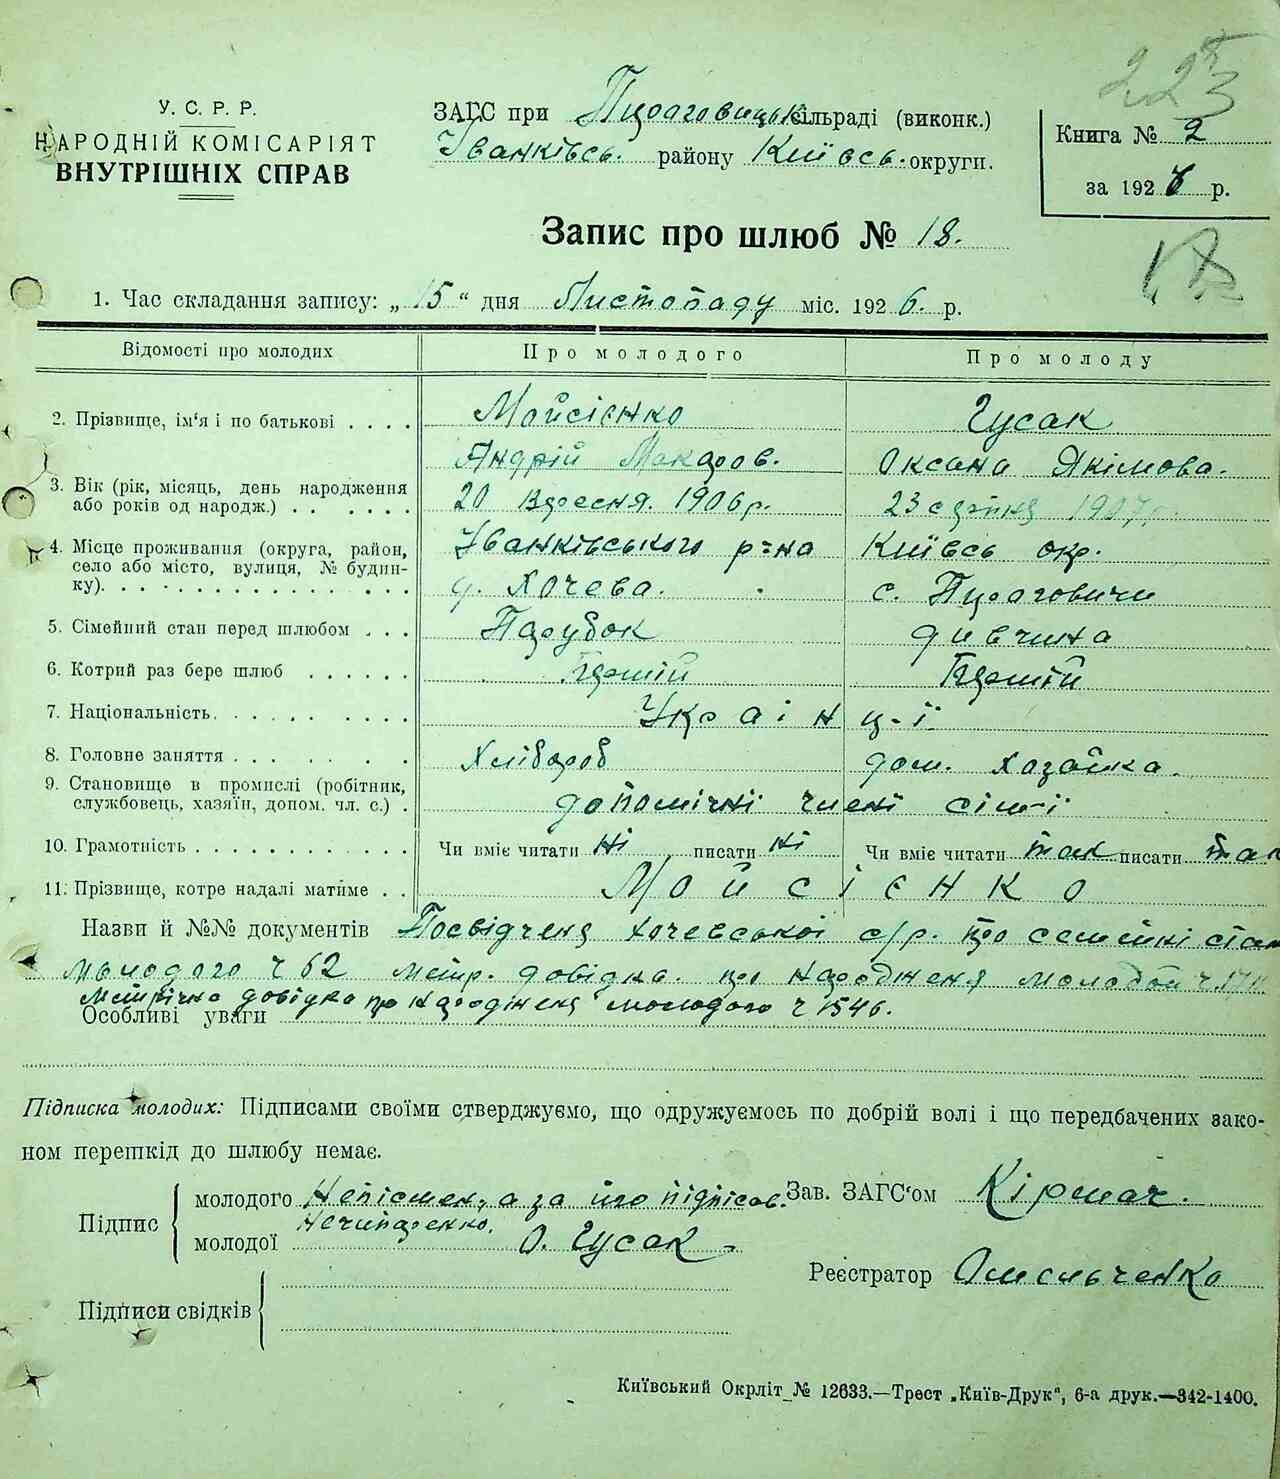 223
У. С. Р. Р.
НАРОДНІЙ КОМІСАРІЯТ
ВНУТРІШНІХ СПРАВ
ЗАГС при Працовицькі сільраді (виконк.)
Іванківсь. району Київсь. округи.
Книга № 2
за 1926 р.
Запис про шлюб № 18.
1. Час складання запису: „15“ дня Листопаду міс. 1926. р.
Відомості про молодих Про молодого Про молоду
2. Прізвище, ім‘я і по батькові Мойсієнко Гусак
Андрій Макаров. Оксана Якімова.
3. Вік (рік, місяць, день народження або років од народж.) 20 Вересня. 1906 р. 23 серпня 1907 р.
4. Місце проживання (округа, район, село або місто, вулиця, № будинку) Іванківського р-на Київсь окр.
д. Хочева. с. Праговичи
5. Сімейний стан перед шлюбом Парубок дивчина
6. Котрий раз бере шлюб Перший Перший
7. Національність Україн ц-ї
8. Головне заняття Хлібороб дом. хазайка.
9. Становище в промислі (робітник, службовець, хазяїн, допом. чл. с.) допомічні члені сім-ї
10. Грамотність Чи вміє читати ні писати ні Чи вміє читати так писати так
11. Прізвище, котре надалі матиме Мойсієнко
Назви й №№ документів Посвідченя Хочевської с/р. про семейні стан
молодого ч 62 метр. довідка. про народженя молодой ч.
Метрічна довідка про народженя молодого ч 1546.
Особливі уваги
Підписка молодих: Підписами своїми стверджуємо, що одружуємось по добрій волі і що передбачених зако-
ном перешкід до шлюбу немає.
Підпис молодого Неписмен, а за його підпісав. Зав. ЗАГС‘ом Кірмач.
Нечипаренко.
молодої О. Гусак
Реєстратор Омельченко
Підписи свідків
Київський Окрліт № 12633.—Трест „Київ-Друк“, 6-а друк.—342-1400.